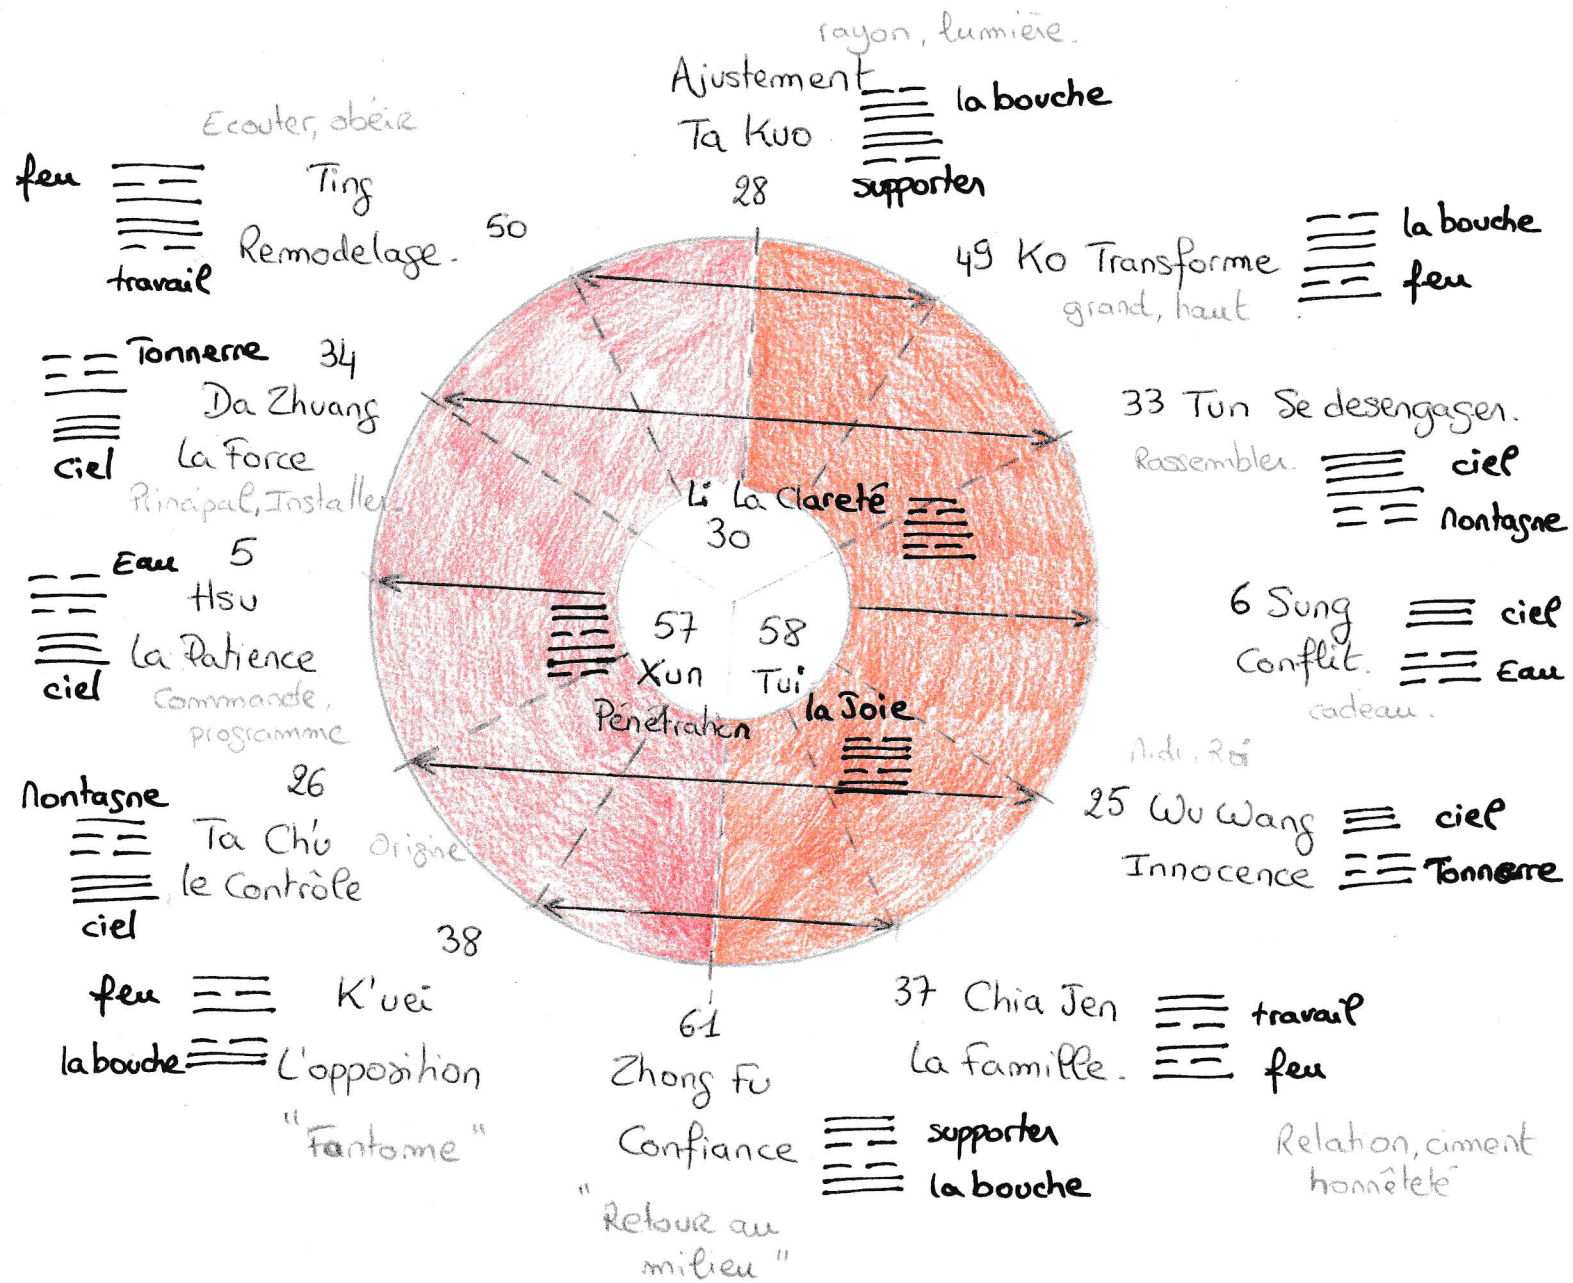 rayon, lumière.
Ajustement
la bouche
Ta Kuo
supporter
28
Ecouter, obéir
feu
Ting
Remodelage.
50
travail
49 Ko Transforme
grand, haut
la bouche
feu
Tonnerre
34
Da Zhuang
La Force
ciel
Principal, Installer.
33 Tun Se desengager.
Rassembler.
ciel
Montagne
Li La Clareté
30
Eau
5
Hsu
La Patience
ciel
Commande,
programme
57
Xun
Pénétration
58
Tui
la Joie
6 Sung
Conflit.
ciel
Eau
cadeau.
Montagne
26
Ta Ch'u
le Contrôle
Origine
ciel
25 Wu Wang
Innocence
ciel
Tonnerre
38
feu
K'uei
la bouche
L'opposition
"Fantome"
61
Zhong Fu
Confiance
supporter
la bouche
"Retour au
milieu"
37 Chia Jen
La famille.
travail
feu
Relation, ciment
honnêteté